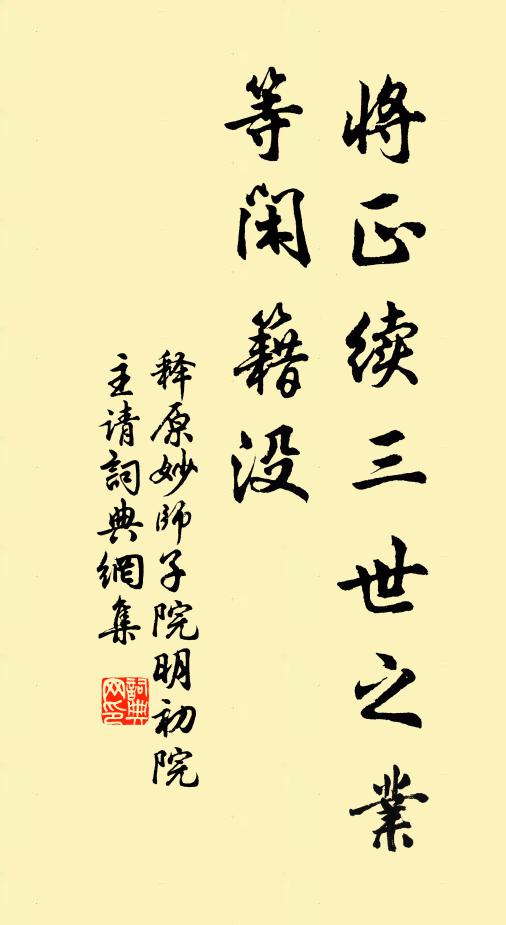 将正续三世之業
等閑籍没
释原妙師子院明初院
主请詞典網集
詞典网印